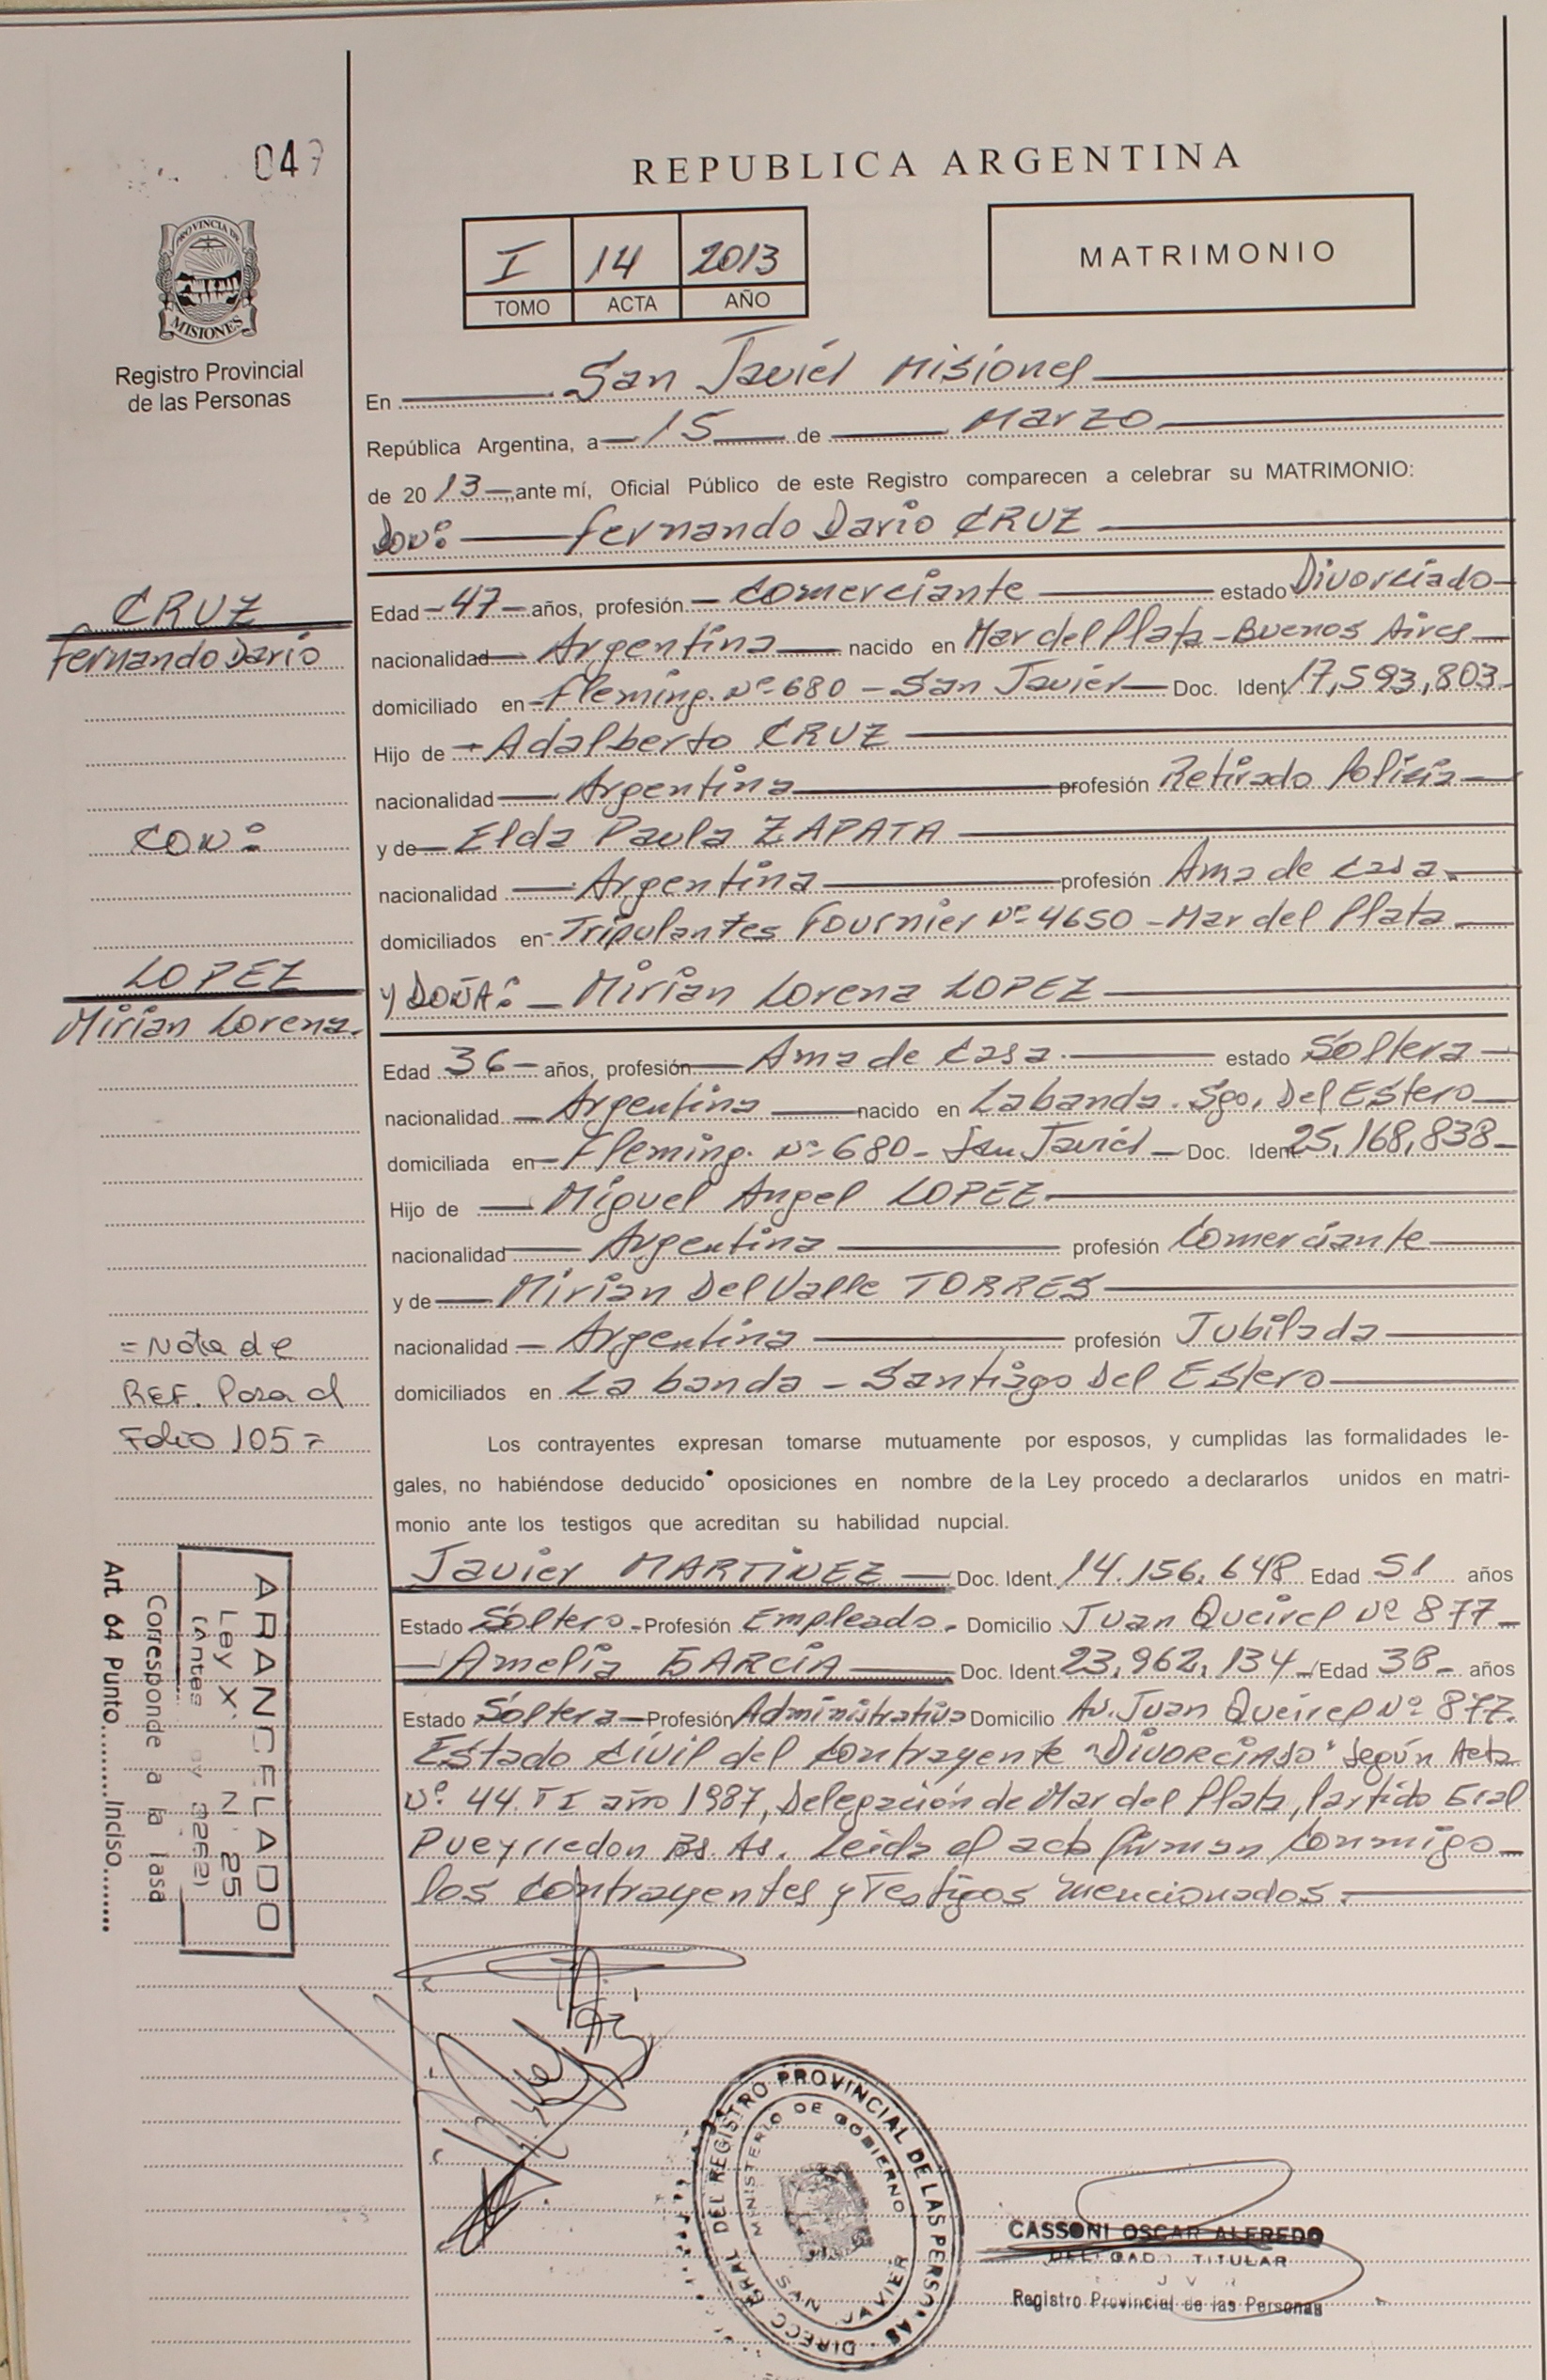 04
REPUBLICA ARGENTINA
I 14 2013
TOMO ACTA AÑO
MATRIMONIO
PROVINCIA DE
MISIONES
Registro Provincial
de las Personas
En San Javier Misiones
República Argentina, a 15 de Marzo
de 20 13 ,ante mí, Oficial Público de este Registro comparecen a celebrar su MATRIMONIO:
DON: Fernando Dario CRUZ
CRUZ
Fernando Dario
Edad 47 años, profesión Comerciante estado Divorciado
nacionalidad Argentina nacido en Mar del Plata - Buenos Aires
domiciliado en Fleming. Nº 680 - San Javier Doc. Ident 17,593,803
Hijo de Adalberto CRUZ
nacionalidad Argentina profesión Retirado Policia
CON:
y de Elda Paula ZAPATA
nacionalidad Argentina profesión Ama de Casa.
domiciliados en Tripulantes Fournier Nº 4650 - Mar del Plata
LOPEZ
Mirian Lorena.
y DOÑA: Mirian Lorena LOPEZ
Edad 36 años, profesión Ama de Casa. estado Soltera
nacionalidad Argentina nacido en La banda. Sgo. Del Estero
domiciliada en Fleming. Nº 680 - San Javier Doc. Ident 25,168,838
Hijo de Miguel Angel LOPEZ
nacionalidad Argentina profesión Comerciante
y de Mirian Del Valle TORRES
nacionalidad Argentina profesión Jubilada
domiciliados en La banda - Santiago Del Estero
= Nota de
REF. Pasa al
Folio 105 =
Los contrayentes expresan tomarse mutuamente por esposos, y cumplidas las formalidades le-
gales, no habiéndose deducido oposiciones en nombre de la Ley procedo a declararlos unidos en matri-
monio ante los testigos que acreditan su habilidad nupcial.
Javier MARTINEZ Doc. Ident. 14.156.648 Edad 51 años
Estado Soltero - Profesión Empleado. Domicilio Juan Queirel Nº 877
Amelia GARCIA Doc. Ident 23,962,134 Edad 38 años
Estado Soltera Profesión Administrativa Domicilio Av. Juan Queirel Nº 877.
Estado Civil del Contrayente "DIVORCIADO" Según Acta
Nº 44. T I año 1987, Delegación de Mar del Plata, Partido Gral
Pueyrredon Bs As. Leida el acta firman Conmigo
los Contrayentes y Testigos mencionados.
ARANCELADO
Ley X. N. 25
(Antes Ley 3262)
Corresponde a la tasa
Art. 64 Punto..........Inciso.........
DIRECC GRAL DEL REGISTRO PROVINCIAL DE LAS PERSONAS
MINISTERIO DE GOBIERNO
SAN JAVIER
CASSONI OSCAR ALFREDO
TITULAR
Registro Provincial de las Personas